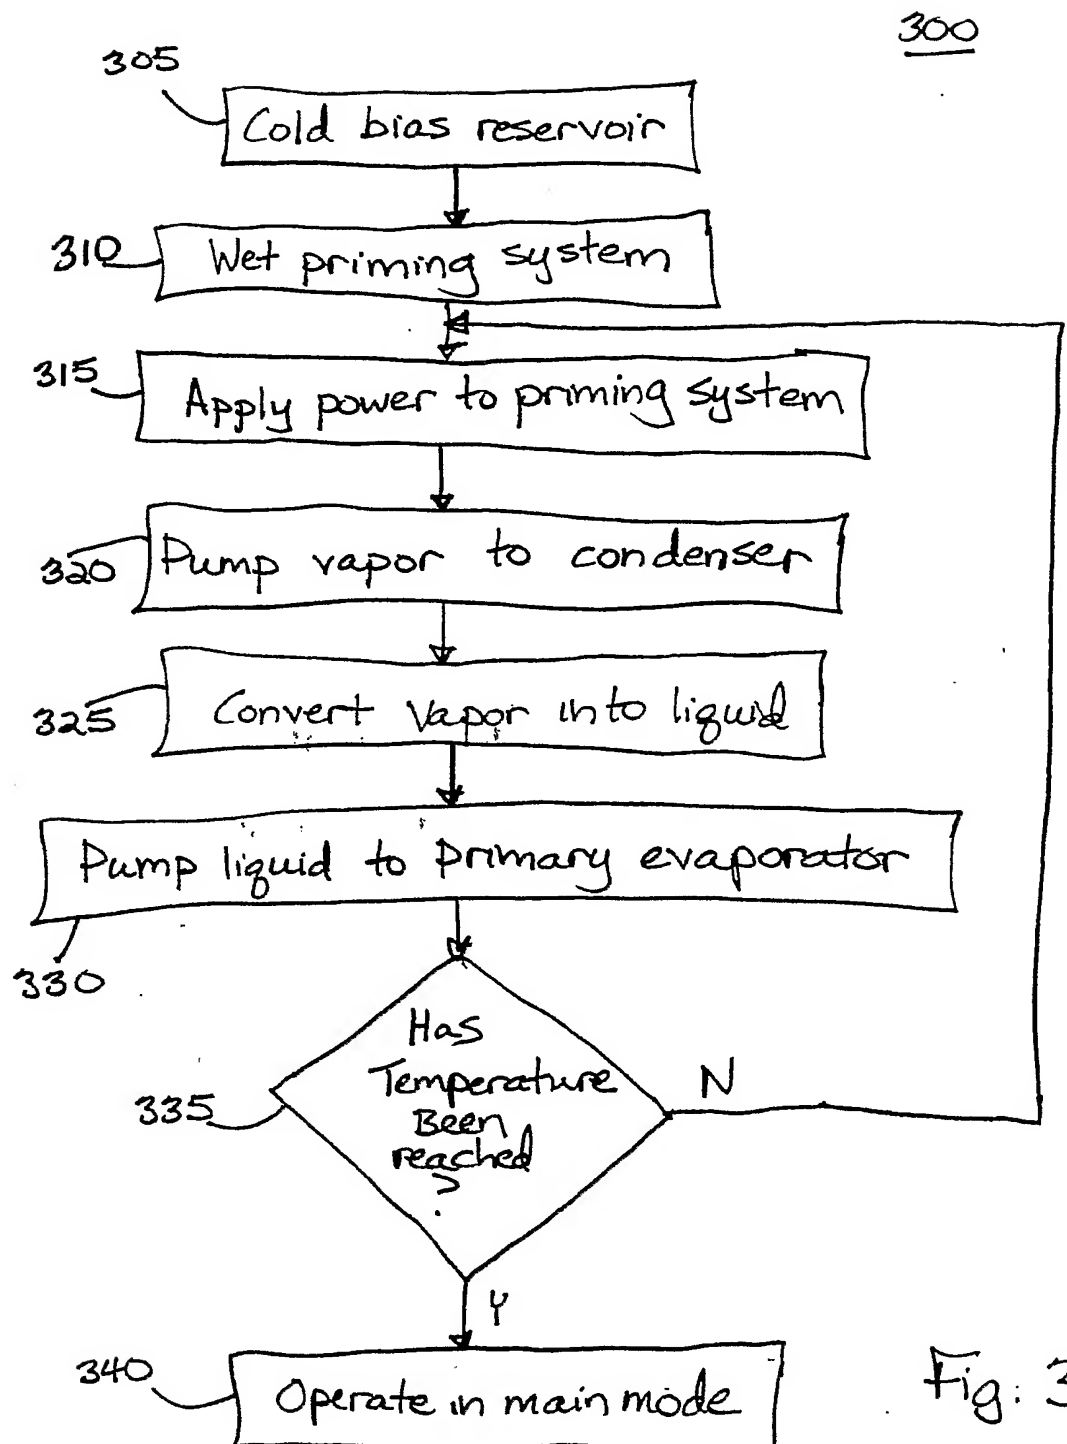 300
305
Cold bias reservoir
310
Wet priming system
315
Apply power to priming system
320
Pump vapor to condenser
325
Convert vapor into liquid
Pump liquid to primary evaporator
330
Has
Temperature
Been
reached
?
N
335
Y
340
Operate in main mode
Fig: 3